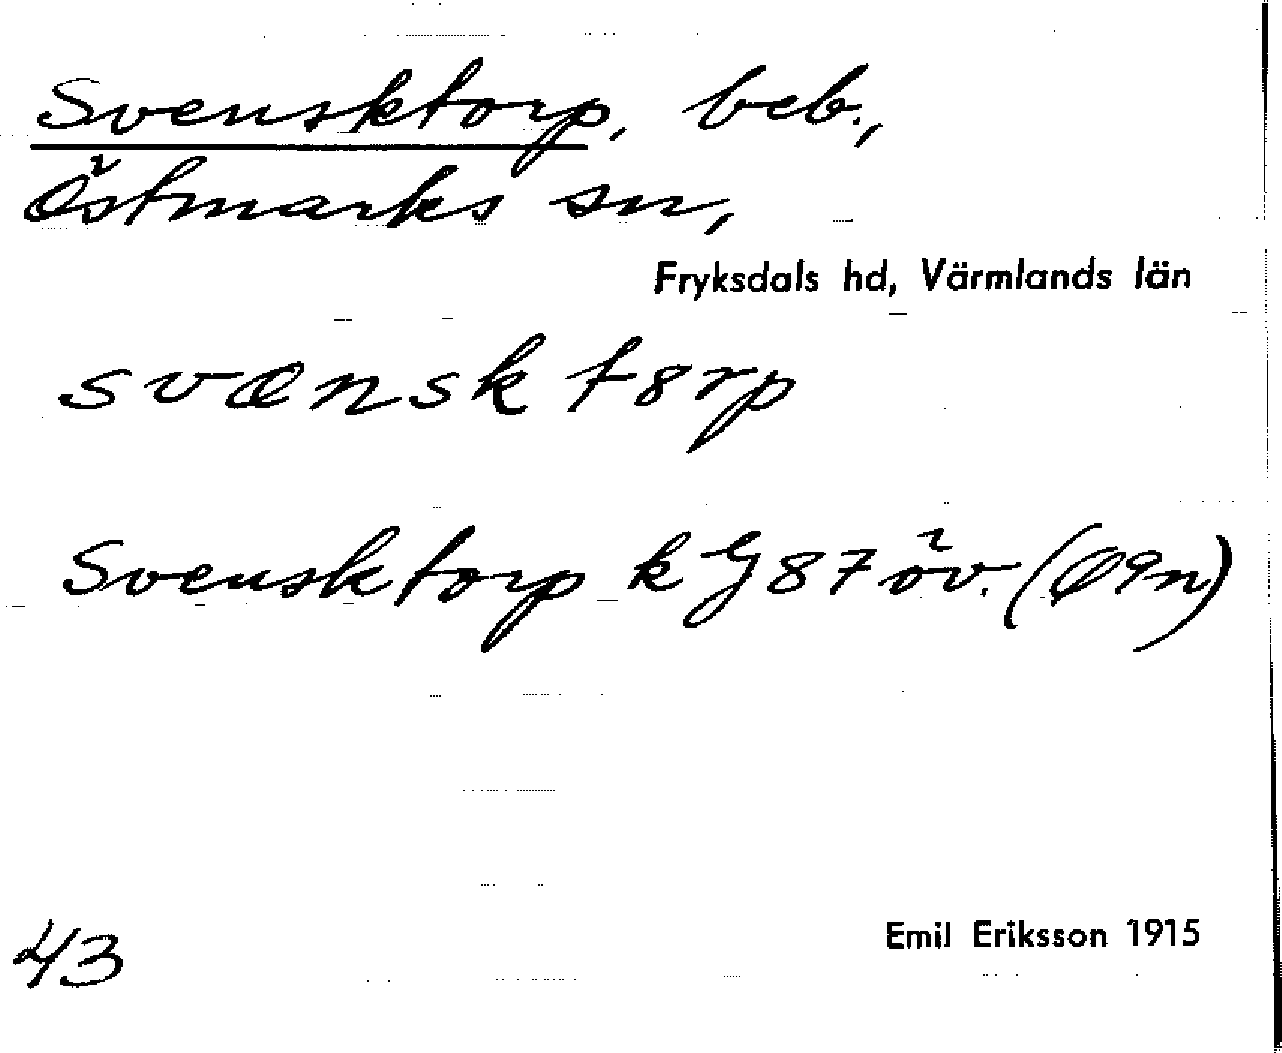 Svensktorp, beb.,
Östmarks sn,
Fryksdals hd, Värmlands län
svænsk t8rp
Svensktorp k G 87 öv. (Ø9n)
43 Emil Eriksson 1915